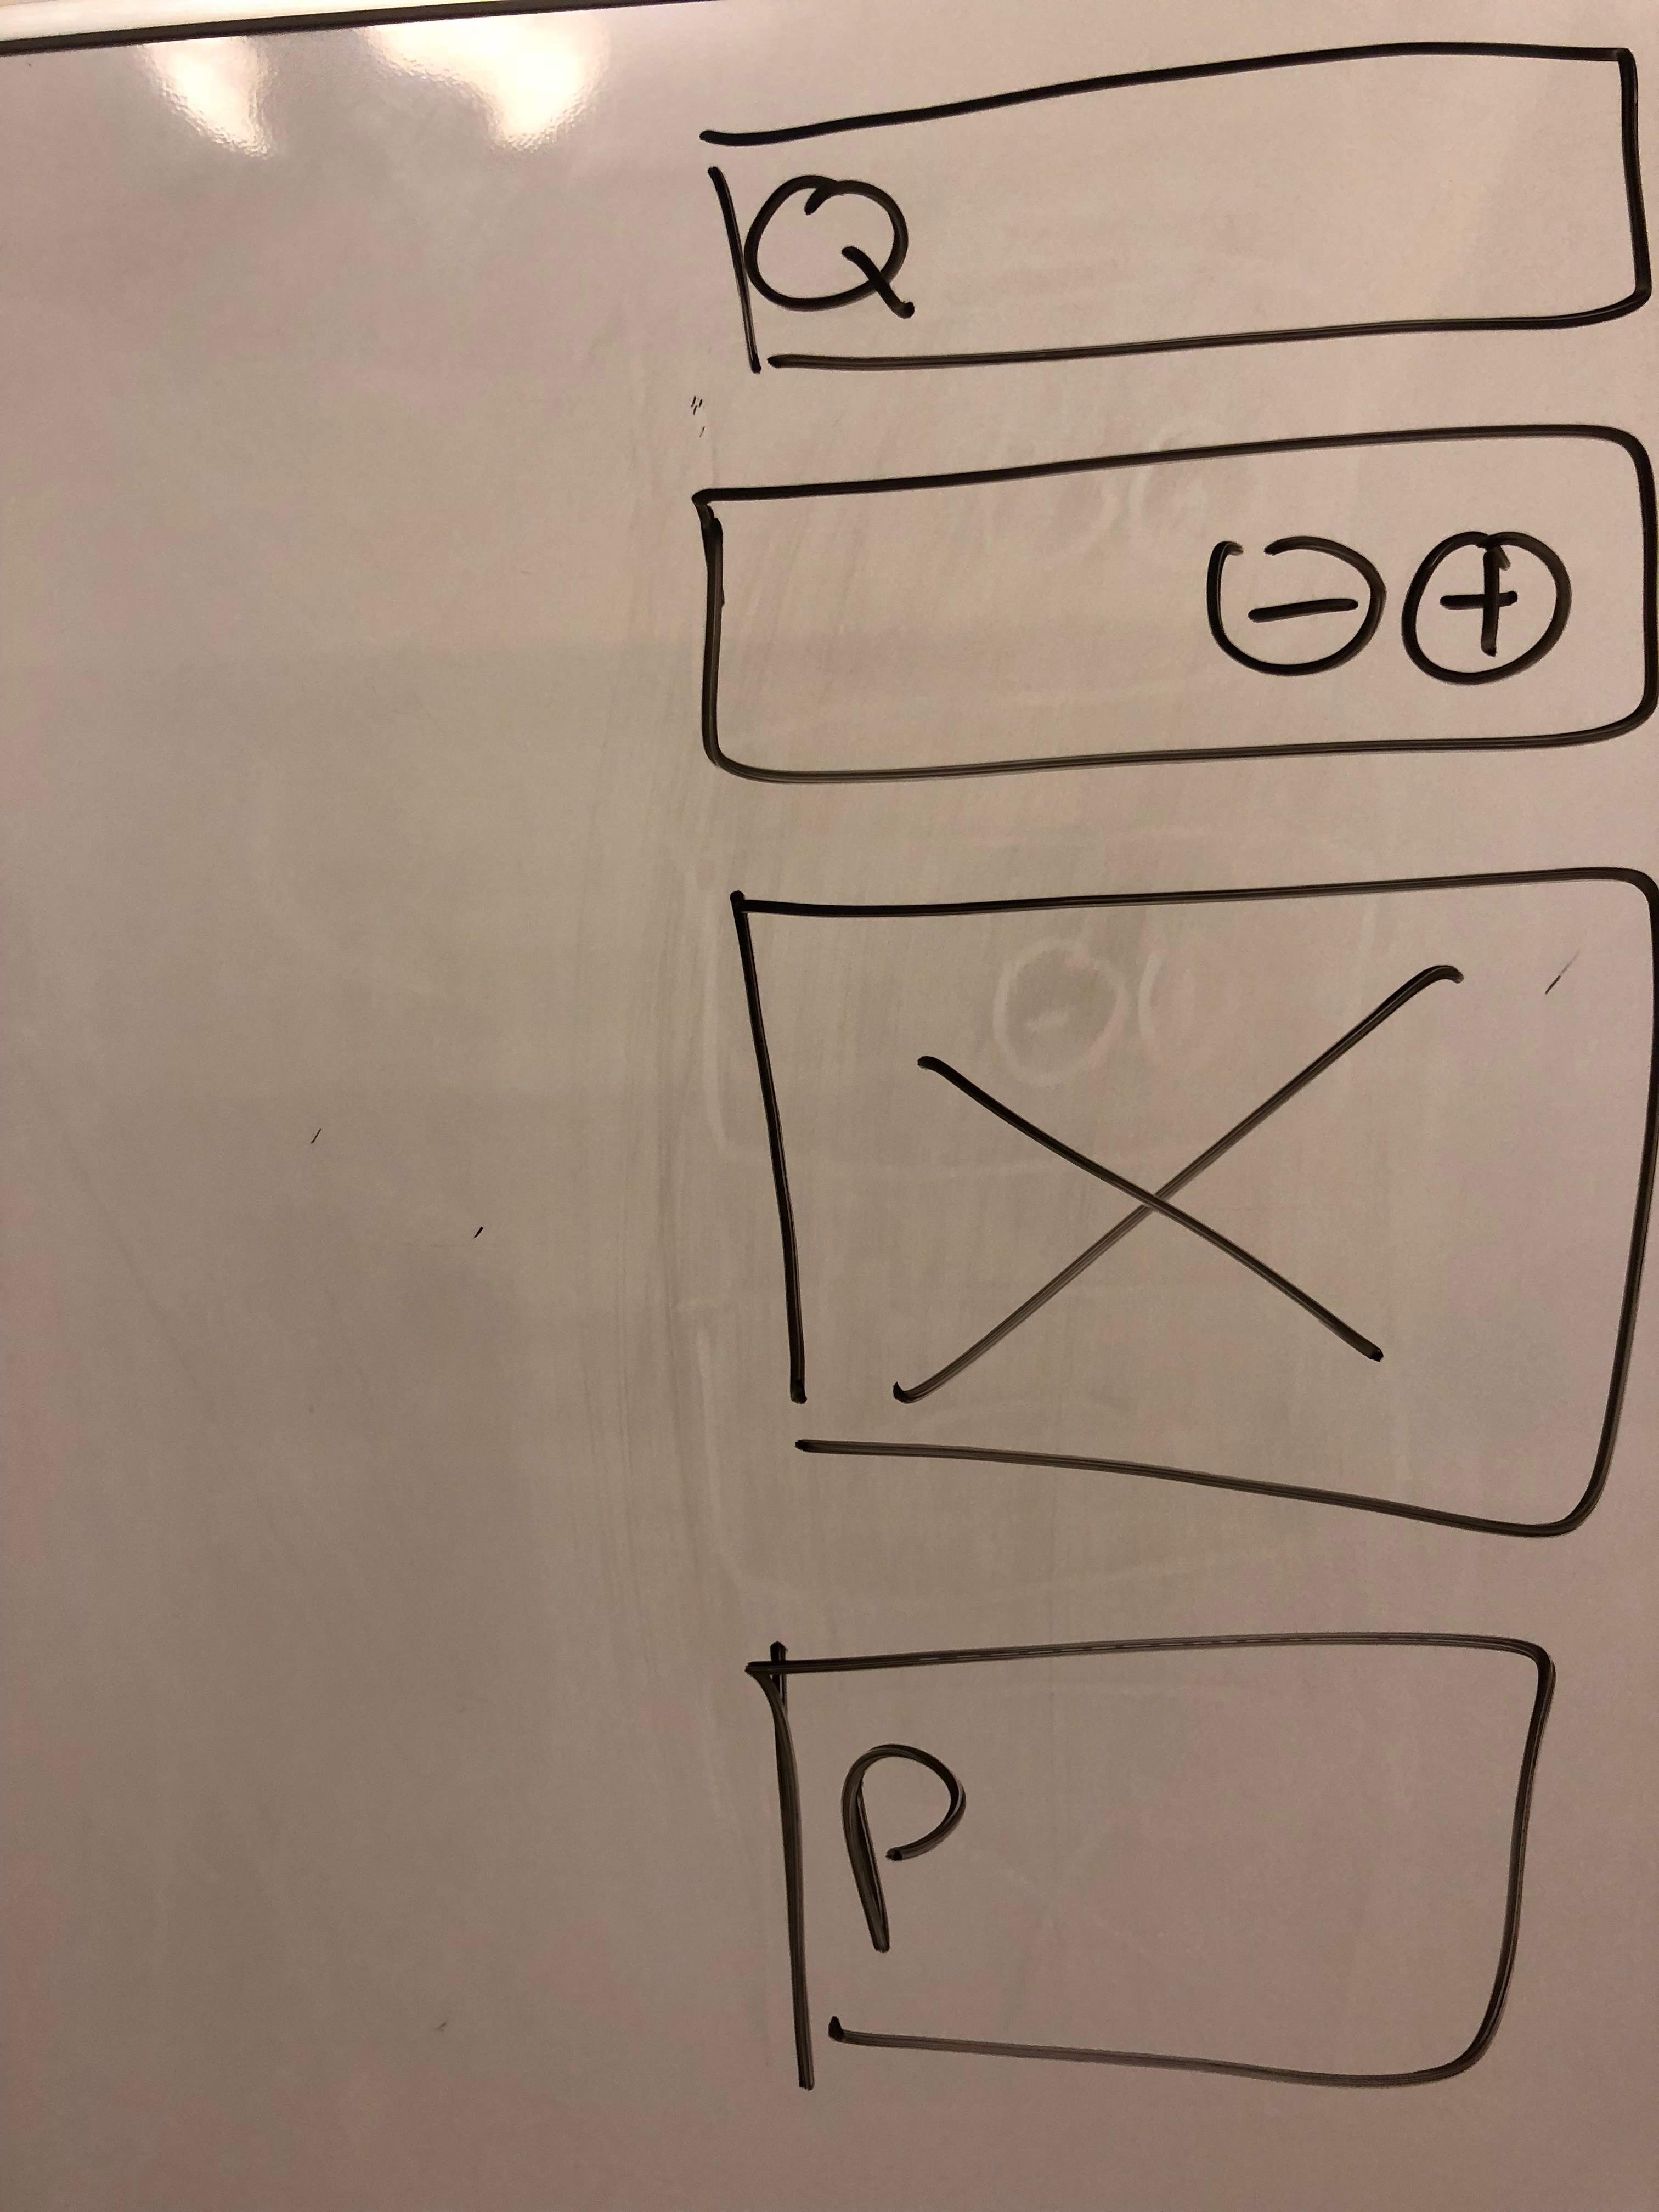 Q
- +
P